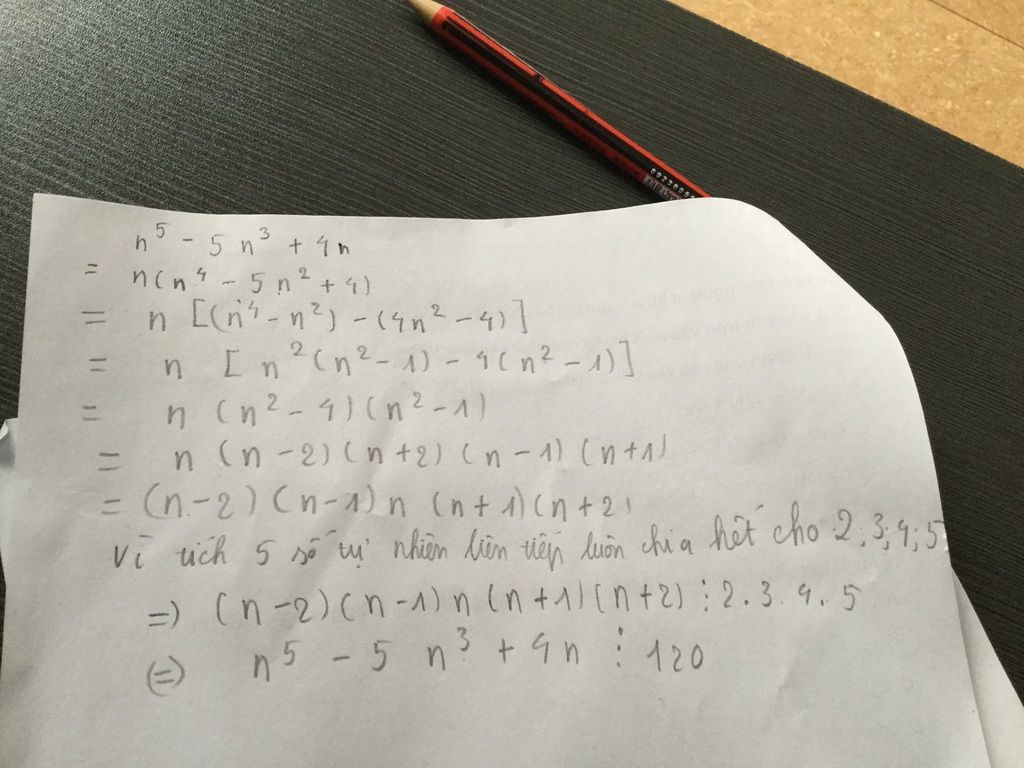 n⁵ - 5n³ + 4n
= n(n⁴ - 5n² + 4)
= n [(n⁴ - n²) - (4n² - 4)]
= n [n²(n² - 1) - 4(n² - 1)]
= n (n² - 4)(n² - 1)
= n (n - 2)(n + 2)(n - 1)(n + 1)
= (n - 2)(n - 1)n(n + 1)(n + 2)
Vì tích 5 số tự nhiên liên tiếp luôn chia hết cho 2;3;4;5
=> (n - 2)(n - 1)n(n + 1)(n + 2) ⋮ 2.3.4.5
(=) n⁵ - 5n³ + 4n ⋮ 120